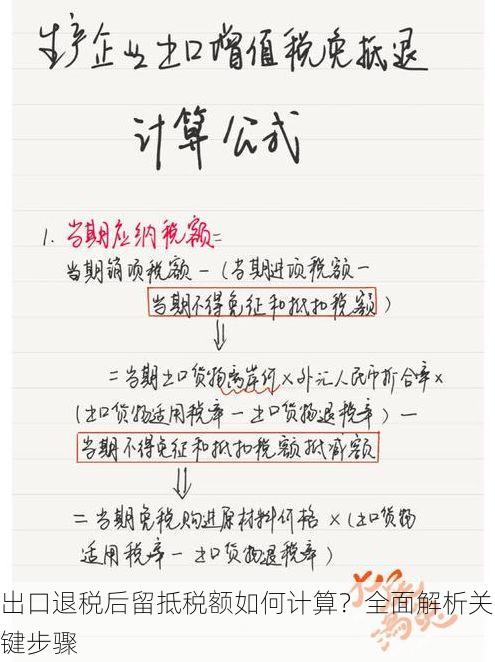 生产企业出口增值税免抵退
计算公式
1. 当期应纳税额=
当期销项税额-(当期进项税额-
当期不得免征和抵扣税额)
=当期出口货物离岸价×外汇人民币折合率×
(出口货物适用税率-出口货物退税率)-
当期不得免征和抵扣税额抵减额
=当期免税购进原材料价格×(出口货物
适用税率-出口货物退税率)
出口退税后留抵税额如何计算?全面解析关
键步骤